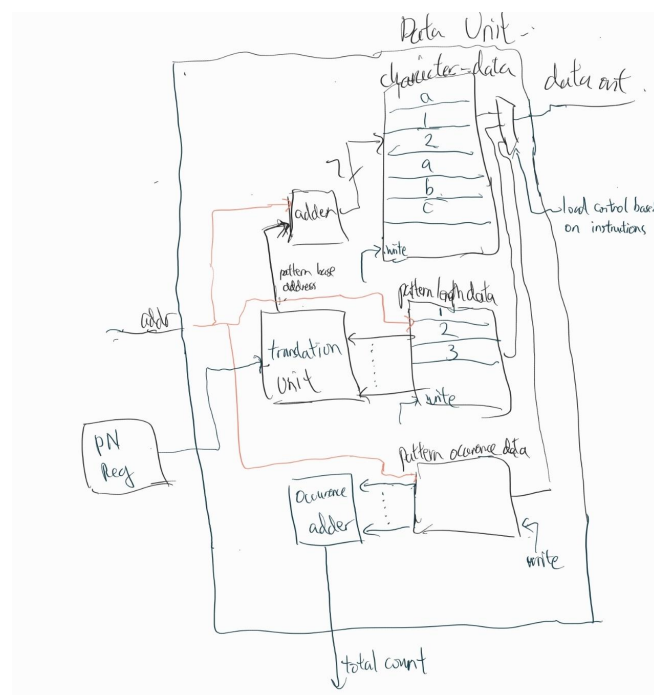 Data Unit
character-data
data out
a
1
2
a
b
c
write
7
adder
load control base
on instructions
pattern base
address
addr
pattern length data
1
2
3
write
translation
Unit
PN
Reg
pattern occurence data
Occurence
adder
write
total count